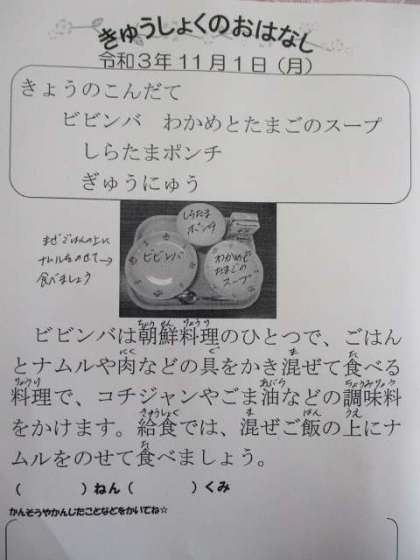 きゅうしょくのおはなし
令和3年11月1日（月）
きょうのこんだて
ビビンバ　わかめとたまごのスープ
しらたまポンチ
ぎゅうにゅう
まぜごはんの上に
ナムルをのせて→
食べましょう
しらたま
ポンチ
ビビンバ
わかめと
たまごの
スープ
ビビンバは朝鮮料理のひとつで、ごはん
とナムルや肉などの具をかき混ぜて食べる
料理で、コチジャンやごま油などの調味料
をかけます。給食では、混ぜご飯の上にナ
ムルをのせて食べましょう。
（　　　）ねん（　　　）くみ
かんそうやかんじたことなどをかいてね☆